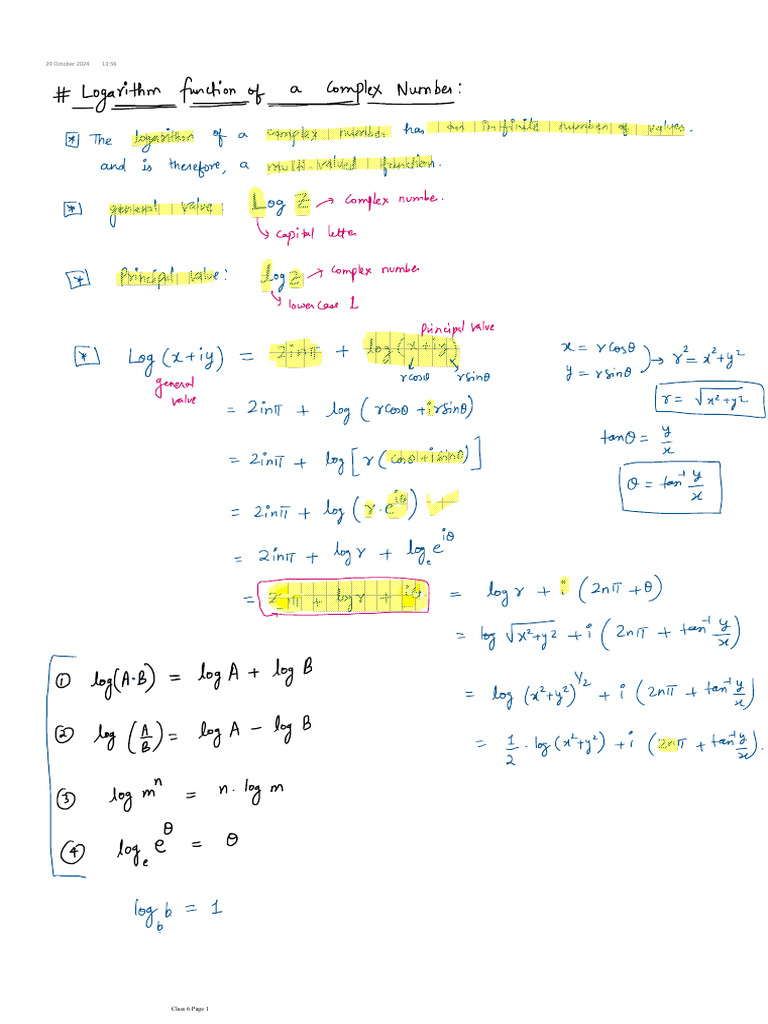 29 October 2024 13:56
# Logarithm function of a Complex Number:
* The logarithm of a complex number has an infinite number of values.
and is therefore, a multi-valued function.
* general value: Log z → Complex numbe.
↳ Capital letter
* Principal value: log z → Complex number
↳ lowercase l
Principal value
* Log (x+iy) = 2inπ + log (x+iy)
general value
rcosθ rsinθ
= 2inπ + log (rcosθ + irsinθ)
= 2inπ + log [r (cosθ + isinθ)]
= 2inπ + log (r·e^{iθ})
= 2inπ + log r + log_e e^{iθ}
= 2inπ + log r + iθ
x = rcosθ
y = rsinθ
→ r² = x²+y²
r = √(x²+y²)
tanθ = y/x
θ = tan⁻¹ y/x
= log r + i (2nπ + θ)
= log √(x²+y²) + i (2nπ + tan⁻¹ y/x)
= log (x²+y²)^{1/2} + i (2nπ + tan⁻¹ y/x)
= 1/2 · log (x²+y²) + i (2nπ + tan⁻¹ y/x).
① log(A·B) = log A + log B
② log (A/B) = log A − log B
③ log mⁿ = n· log m
④ log_e e^θ = θ
log_b b = 1
Class 6 Page 1